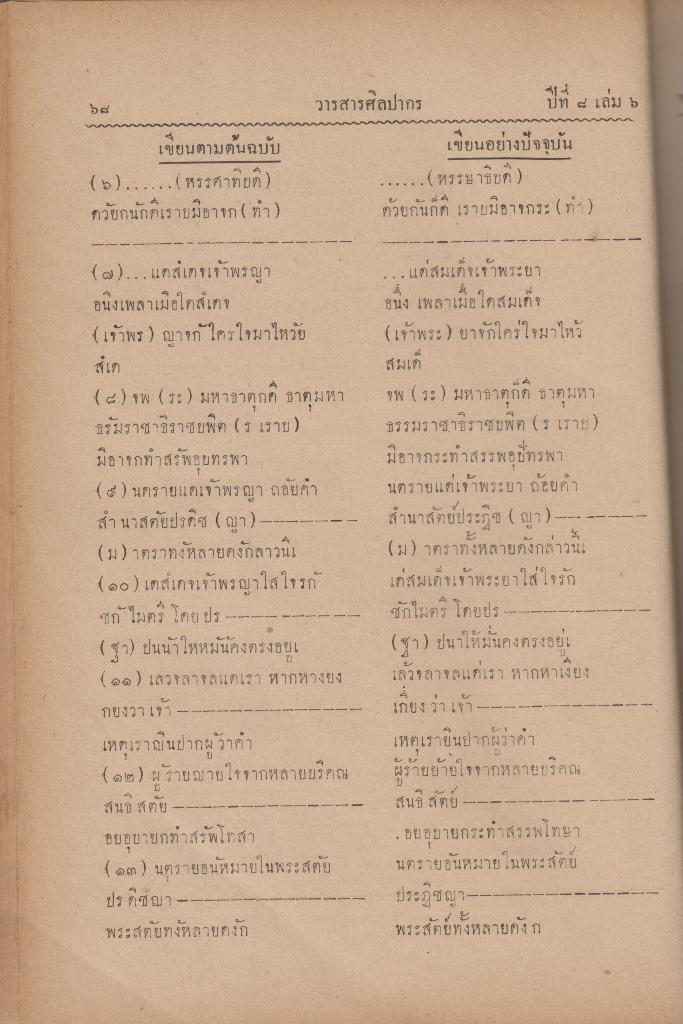 ๖๘ วารสารศิลปากร ปีที่ ๘ เล่ม ๖
เขียนตามต้นฉบับ
(๖)......(หรรศาทิยดี)
ควัยกนักดิเรายมิอาจก(ทำ)
(๗)...แดสํเดจเจ้าพรญา
อนิงเพลาเมิอใดสํเดจ
(เจ้าพร) ญาจกัใครใจมาไหวัย
สํเด
(๘) จพ (ระ) มหาธาตุกดิ ธาตุมหา
ธรัมราชาธิราชยพิต (ร เราย)
มิอาจกทำสรัพอุยทรพา
(๙) นตรายแดเจ้าพรญา ถอัยคำ
สํานาสตัยปรดิช (ญา)
(ม) าตราทงัหลายดงักลาวนิเ
(๑๐) เดสํเดจเจ้าพรญาใสใจรกั
ชกัไมตรี โดยปร
(ฐา) ปนน้าใหหมันัคงตรงอยูเ
(๑๑) เลวจลาจลแดเรา หากหางยง
กยงวา เจ้า
เหตุเราญินปากผูวัาคำ
(๑๒) ผูรัายฌายใจจากหลายบริคณ
สนธิ สตัย
อยอุบายกทำสรัพโทสา
(๑๓) นตฺรายอนัหมายในพระสตัย
ปร ดิชญา
พระสตัยทงัหลายดงัก
เขียนอย่างปัจจุบัน
......(หรรษาธิยดี)
ด้วยกันก็ดี เรายมิอาจกระ(ทำ)
...แด่สมเด็จเจ้าพระยา
อนึ่ง เพลาเมื่อใดสมเด็จ
(เจ้าพระ) ยาจักใคร่ใจมาไหว้
สมเด็
จพ (ระ) มหาธาตุก็ดี ธาตุมหา
ธรรมราชาธิราชยพิต (ร เราย)
มิอาจกระทำสรรพอุบัทรพา
นตรายแด่เจ้าพระยา ถ้อยคำ
สำนาสัตย์ประฏิช (ญา)
(ม) าตราทั้งหลายดังกล่าวนี้เ
เด่สมเด็จเจ้าพระยาใส่ใจรัก
ชักไมตรี โดยปร
(ฐา) ปนาให้มั่นคงตรงอยู่เ
เล้วจลาจลแด่เรา หากหาเงียง
เกี่ยง ว่า เจ้า
เหตุเรายินปากผู้ว่าคำ
ผู้ร้ายย้ายใจจากหลายบริคณ
สนธิ สัตย์
.อยอุบายกระทำสรรพโทษา
นตรายอันหมายในพระสัตย์
ประฏิชญา
พระสัตย์ทั้งหลายดัง ก